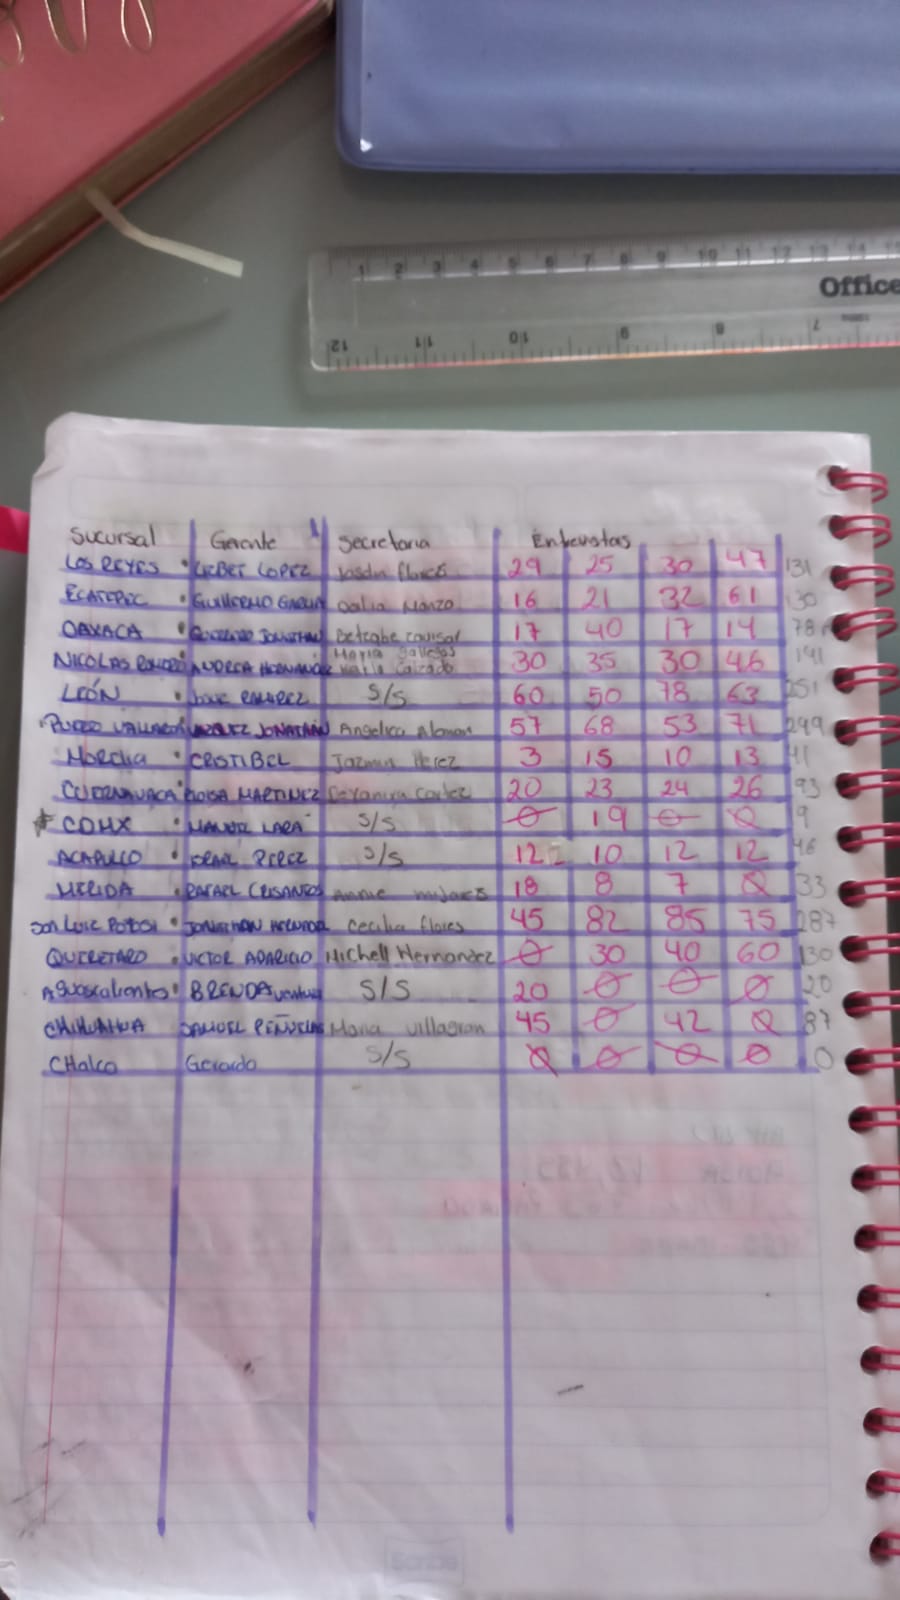 1 2 3 4 5 6 7 8 9 10 11 12 13 14
Office
12 11 10 9 8 7
Sucursal Gerente Secretaria Entevistas
LOS REYES LOPEZ flores 29 25 30 47 131
ECATEPEC GUILLERMO GARCIA Dalia Manzo 16 21 32 61 130
OAXACA JONATHAN Betzabe 17 40 17 14 78
Maria gallegos
NICOLAS ROMERO ANDREA HERNANDEZ Karla Caizado 30 35 30 46 141
LEÓN JOSUE RAMIREZ S/S 60 50 78 63 251
PUERTO VALLARTA VAZQUEZ JONATHAN Angelica Aleman 57 68 53 71 249
Morelia CRISTIBEL Jazmin Perez 3 15 10 13 41
CUERNAVACA ELOISA MARTINEZ Deyanira Cortez 20 23 24 26 93
* CDMX MANUEL LARA S/S 0 19 0 0 9
ACAPULCO ISRAEL PEREZ S/S 12 10 12 12 46
MERIDA RAFAEL CRISANTOS Annie mijares 18 8 7 0 33
San Luis Potosi JONATHAN Cecilia flores 45 82 85 75 287
QUERETARO VICTOR APARICIO Michell Hernandez 0 30 40 60 130
Aguascalientes BRENDA Ventura S/S 20 0 0 0 20
CHIHUAHUA SAMUEL PEÑUELAS Maria Villagran 45 0 42 0 87
CHalco Gerardo S/S 0 0 0 0 0
Scribe